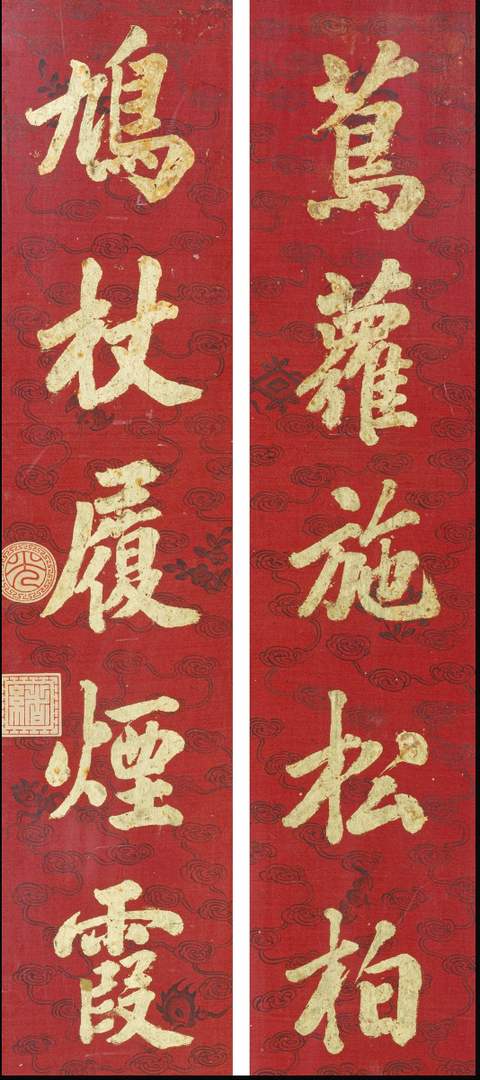 蔦蘿施松柏
鳩杖履煙霞